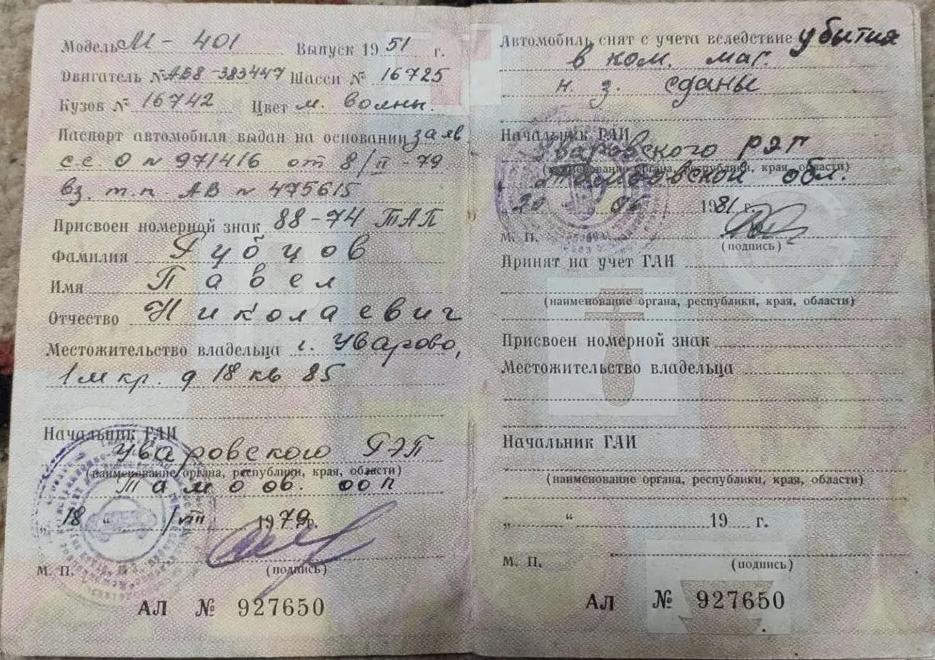 Модель М - 401 Выпуск 1951 г.
Двигатель № АВ8-383447 Шасси № 16725
Кузов № 16742 Цвет м. волны.
Паспорт автомобиля выдан на основании заяв
с.с. О № 971416 от 8/II-79
вз. т.п АВ № 475615
Присвоен номерной знак 88-74 ТАП
Фамилия Рубцов
Имя Павел
Отчество Николаевич
Местожительство владельца г. Уварово,
1 мкр. д 18 кв 85
Начальник ГАИ
Уваровского РЭП
(наименование органа, республики, края, области)
Тамбов.
„18“ 1979г.
М. П. (подпись)
АЛ № 927650
Автомобиль снят с учета вследствие убытия
в ком. маг.
н. з. сданы
Начальник ГАИ
Уваровского РЭП
(наименование органа, республики, края, области)
Тамбовской обл.
20 06 1981 г.
М. П. (подпись)
Принят на учет ГАИ
(наименование органа, республики, края, области)
Присвоен номерной знак
Местожительство владельца
Начальник ГАИ
(наименование органа, республики, края, области)
„ “ 19 г.
М. П. (подпись)
АЛ № 927650